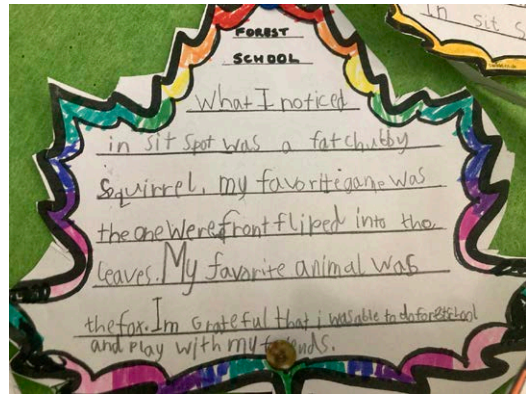 FOREST
SCHOOL
What I noticed
in sit spot was a fat chubby
squirrel, my favorite game was
the one Were front fliped into the
leaves. My favorite animal was
the fox. Im Grateful that i was able to do forest school
and play with my friends.
In sit s